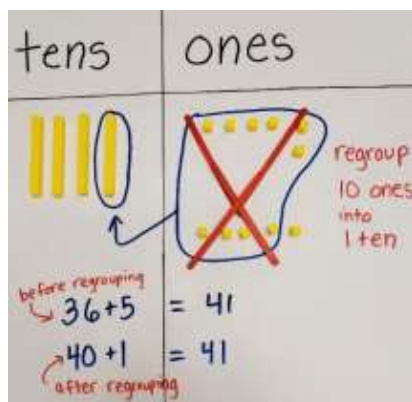 tens ones
regroup
10 ones
into
1 ten
before regrouping
36+5 = 41
40+1 = 41
after regrouping